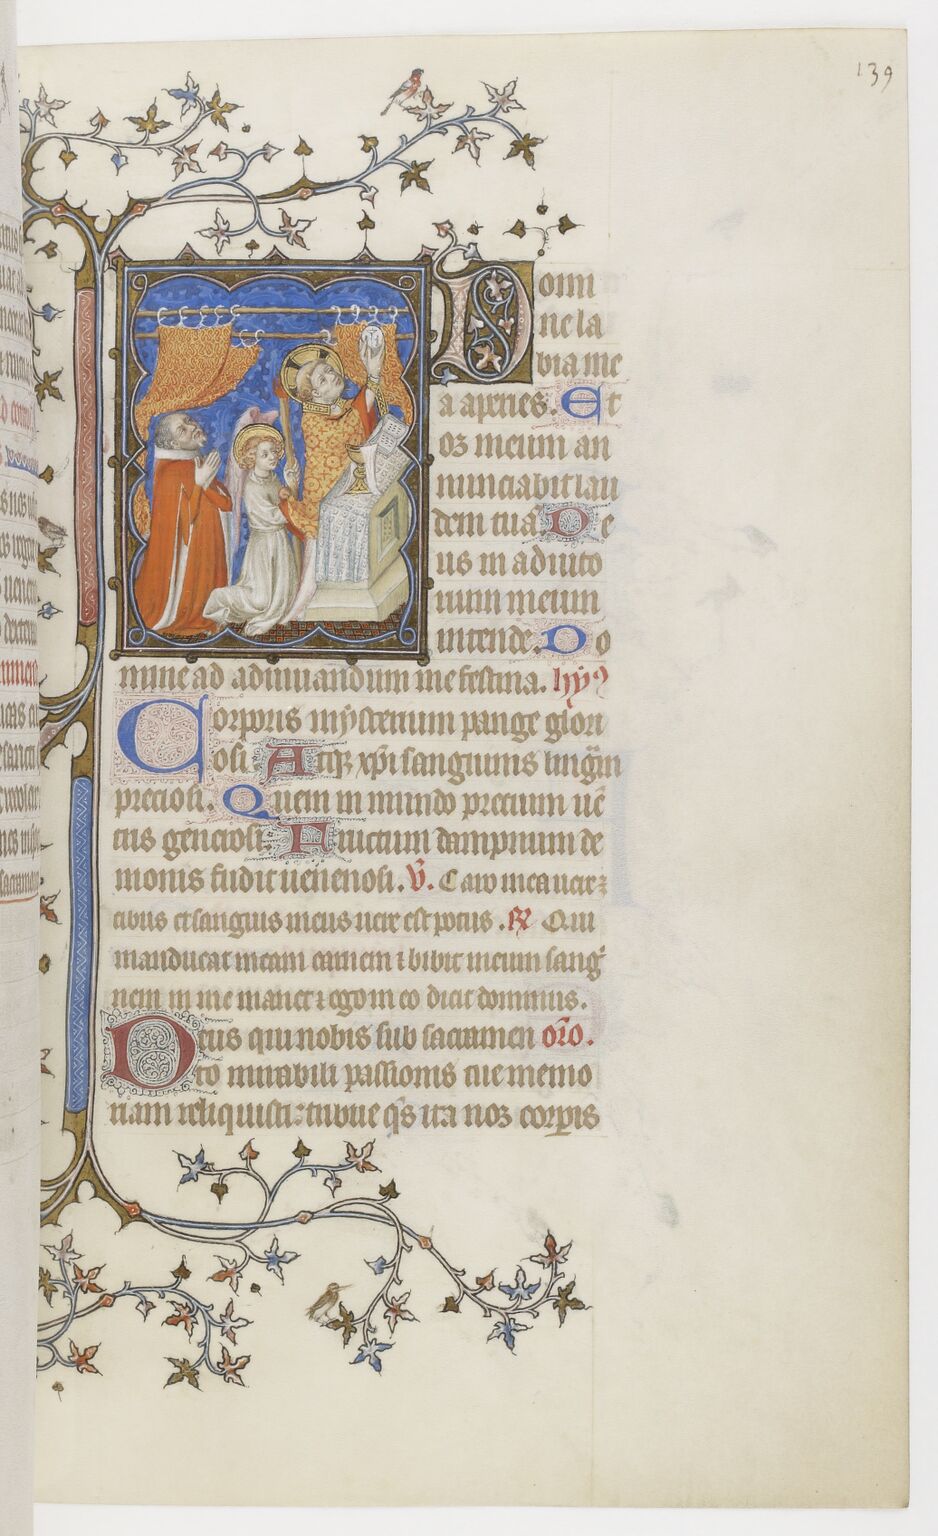 139
Domi
ne la
bia me
a aperies. Et
os meum an
nunciabit lau
dem tuã. De
us in adiuto
rium meum
intende. Do
mine ad adiuuandum me festina. hy9
Corporis mysterium pange glori
osi. Atq3 xp̃i sanguinis
preciosi. Quem in mundo precium uẽ
tris generosi. Fructum dampnum de
monis fudit uenenosi. V̄. Caro mea uere
cibus et sanguis meus uere est potus. R̄ Qui
manducat meam carnem ⁊ bibit meum sang
nem in me manet ⁊ ego in eo dicit dominus.
Deus qui nobis sub sacramen or̃o.
to mirabili passionis tue memo
riam reliquisti: tribue q̃s ita nos corpris